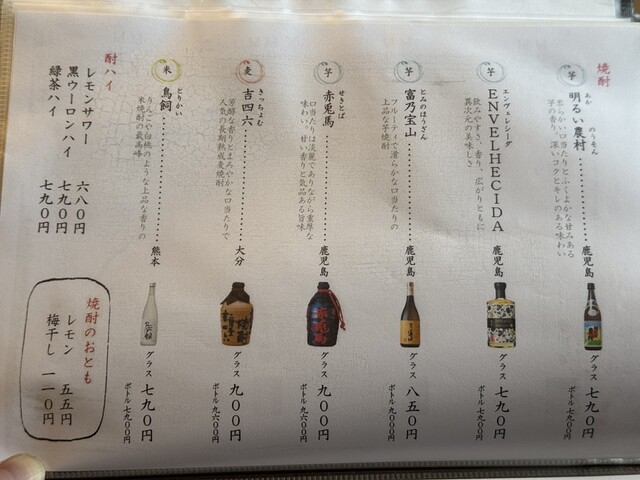 焼酎
芋
明るい農村
あか
のうそん
柔らかい口当たりとふくよかな甘みある
芋の香り、深いコクとキレのある味わい
鹿児島
グラス 七九〇円
ボトル 七、九〇〇円
芋
ENVELHECIDA
エンヴェレシーダ
飲みやすさ、香り、広がりともに
異次元の美味しさ
鹿児島
グラス 七九〇円
ボトル 七、九〇〇円
芋
富乃宝山
とみのほうざん
フルーティで滑らかな口当たりの
上品な芋焼酎
鹿児島
グラス 八五〇円
芋
赤兎馬
せきとば
口当たりは淡麗でありながら重厚な
味わい。甘い香りと気品ある旨味
鹿児島
グラス 九〇〇円
麦
吉四六
きっちょむ
芳醇な香りとまろやかな口当たりで
人気の長期熟成麦焼酎
大分
グラス 九〇〇円
ボトル 九、六〇〇円
米
鳥飼
とりかい
りんごや白桃のような上品な香りの
米焼酎の最高峰
熊本
グラス 七九〇円
ボトル 七、九〇〇円
酎ハイ
レモンサワー 六八〇円
黒ウーロンハイ 七九〇円
緑茶ハイ 七九〇円
焼酎のおとも
レモン 五五円
梅干し 一一〇円